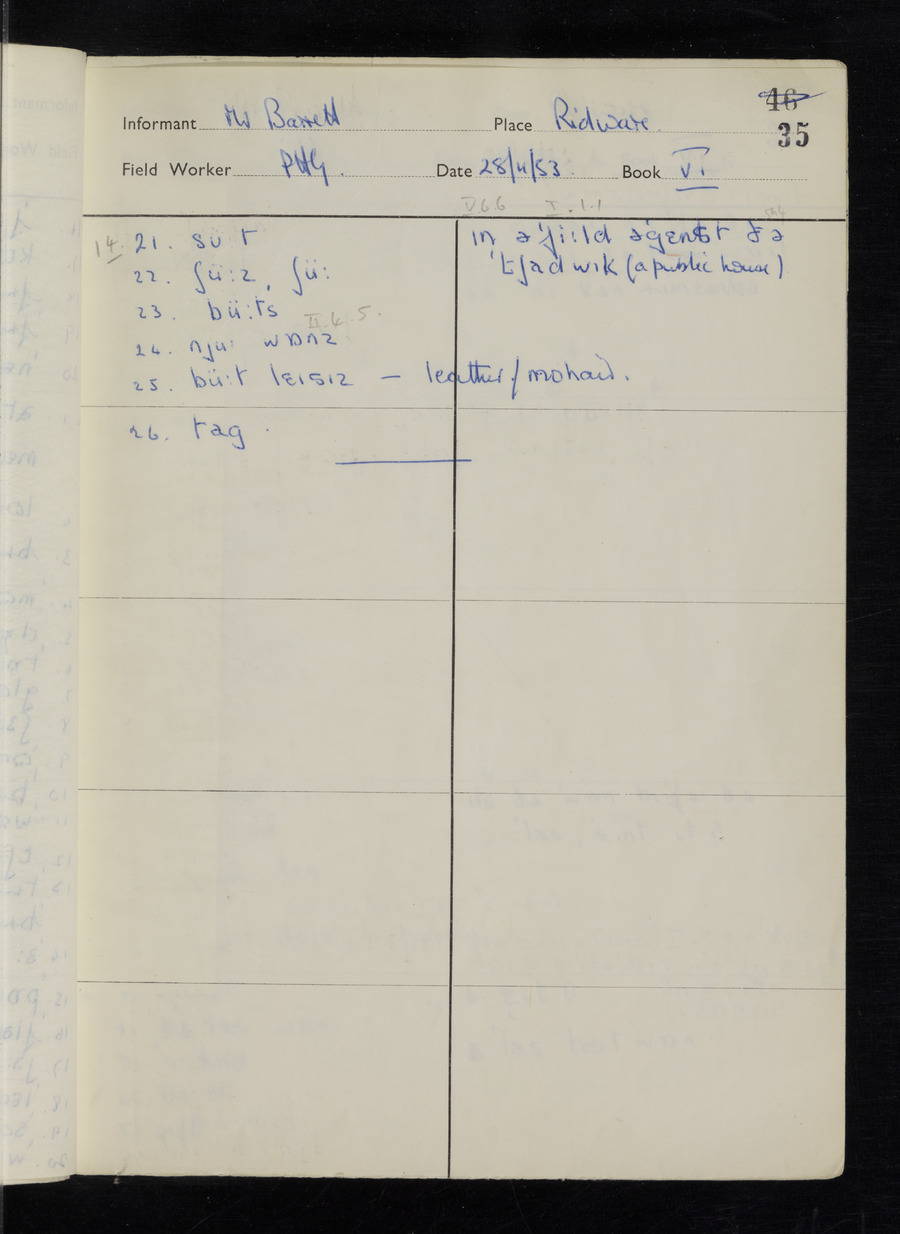 46
35
Informant Mr Barrett Place Ridware.
Field Worker PHG. Date 28/4/53 Book VI
V.6.6 I.1.1
14. 21. sü:t
22. ʃü:z, ʃü:
23. bü:ts
II.6.5.
24. nju: wɒnz
25. bü:t lɛɪsɪz — leather / mohair.
26. tag.
ɪn ə fi:ld əgɛnst ðə
'tʃadwɪk (a public house)